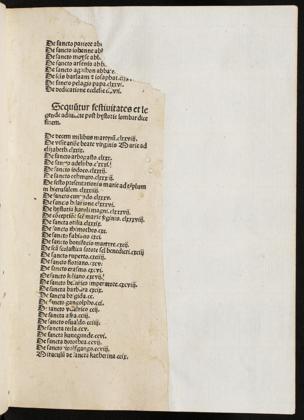 De sancto pastore abb
De sancto iohanne abb
De sancto moyse abb.
De sancto arsenio abb.
De sancto agathon abbate.
De sctis barlaam et iosaphat.
De sancto pelagio papa.clxxv
De dedicatione ecclesie
Sequũtur festivitates et le
gende post hystorie lombardice
finem.
De decem milibus martyrũ.clxxviij.
De visitatiõe beate virginis Marie ad
elizabeth.clxix.
De sancto arbogasto.clxx.
De sancto adelpho.clxxi
De sancto isidoro.clxxij.
De sancto
De festo presentationis marie ad tẽplum
in hierusalem.
De sancto
De sancto
De hystoria karoli magni.
De cõceptiõe virginis.
De sancta otilia.
De sancto
De sancto fabiano
De sancto bonifacio martyre.cxcij.
De scã scolastica sorore scĩ benedicti.cxciij
De sancto ruperto.cxciiij.
De sancto floriano.cxcv.
De sancto erasmo.cxcvi.
De sancto kiliano.
De sancto heinrico imperatore.cxcviij.
De sancta barbara.cxcix.
De sancta brigida.cc.
De sancto gangolpho.cci.
De sancto vdalrico.ccij.
De sancta afra.cciij.
De sancto osualdo.cciiij.
De sancta tecla.ccv.
De sancta kunegunde.ccvi.
De sancta dorothea.ccvij.
De sancto wolfgango.ccviij.
Miraculũ de sancta katherina.ccix.